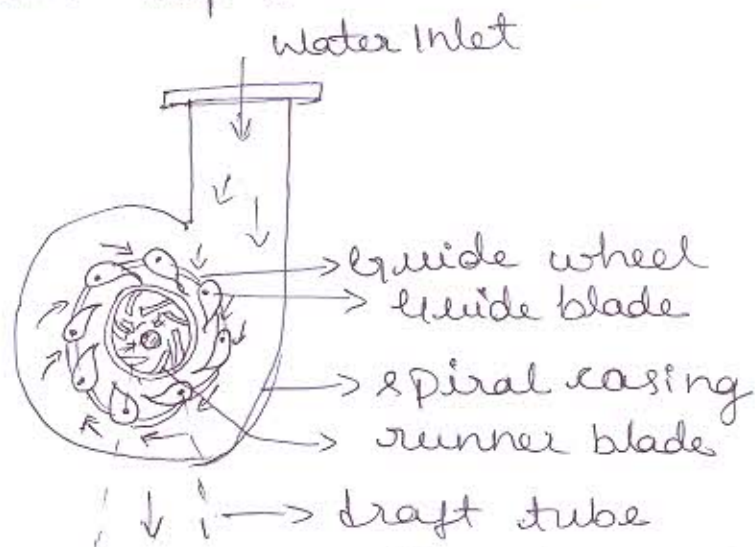 Water Inlet
Guide wheel
Guide blade
spiral casing
runner blade
draft tube